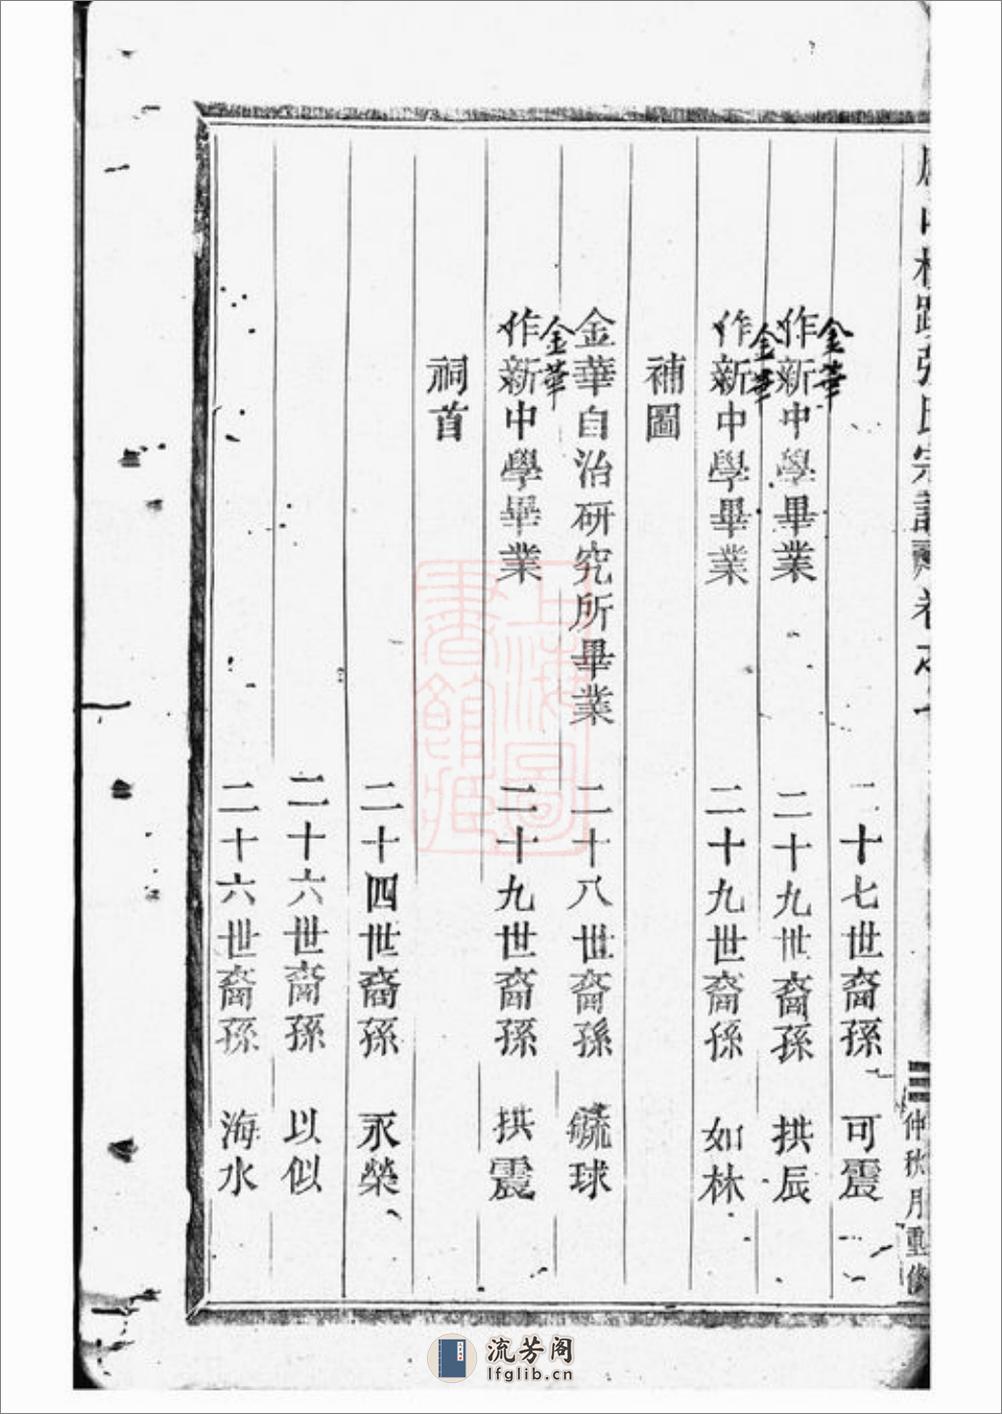 張氏宗譜 卷之
仲秋月重修
二十七世裔孫 可震
金華
作新中學畢業 二十九世裔孫 拱辰
金華
作新中學畢業 二十九世裔孫 如林
補圖
金華自治研究所畢業 二十八世裔孫 毓球
金華
作新中學畢業 二十九世裔孫 拱震
祠首
二十四世裔孫 永榮
二十六世裔孫 以似
二十六世裔孫 海水
上海圖書館藏
流芳阁
lfglib.cn